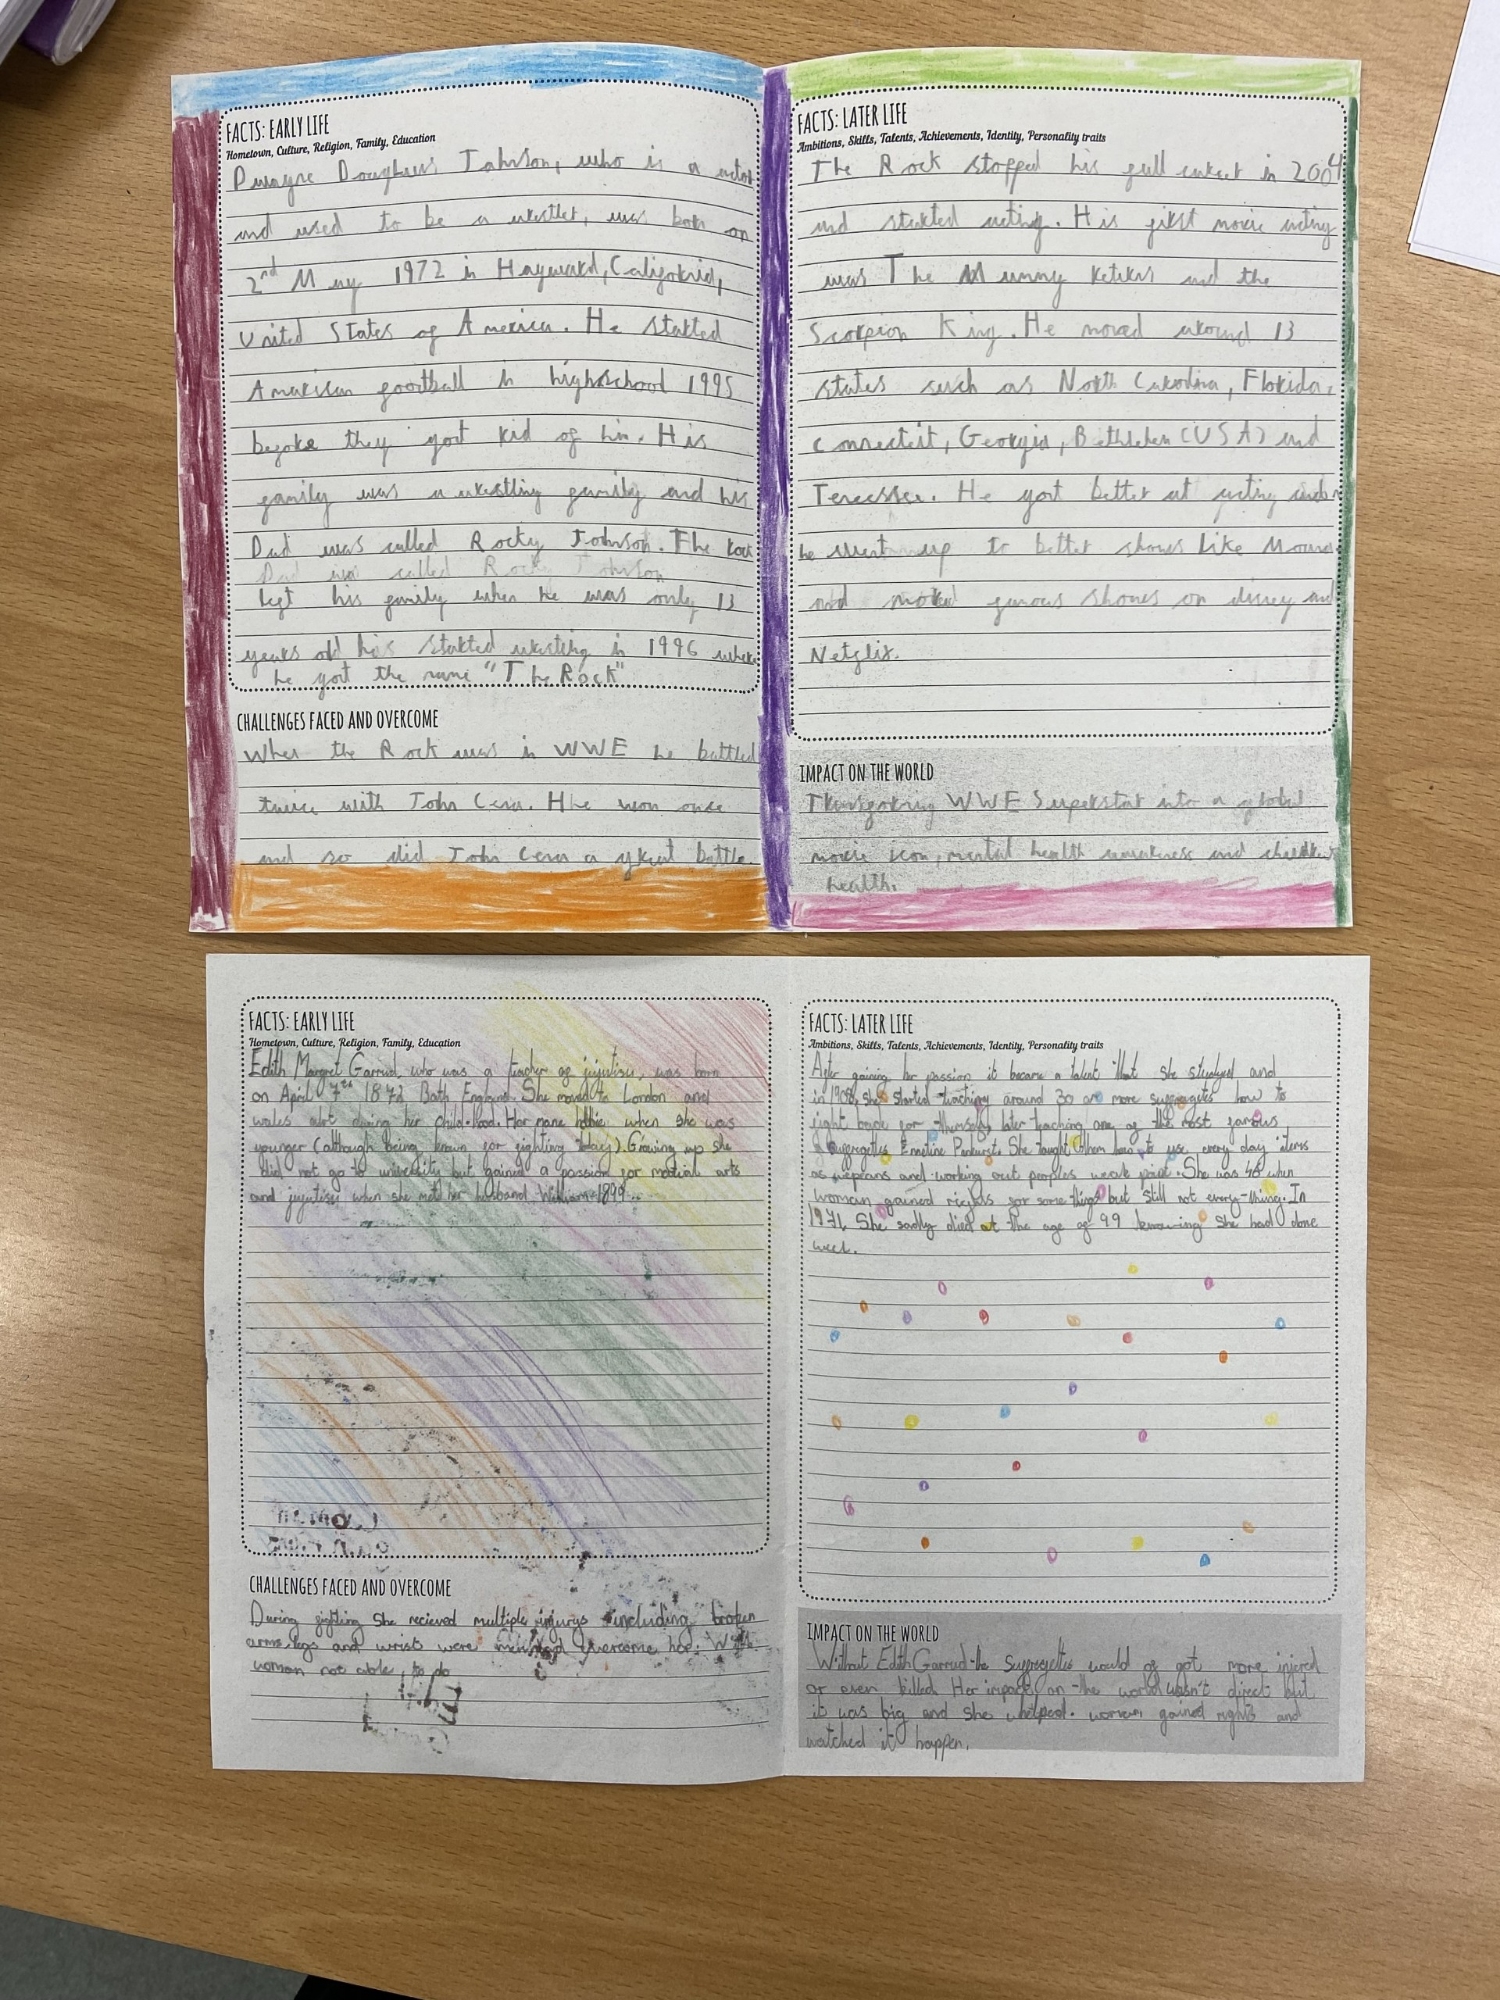 FACTS: EARLY LIFE
Hometown, Culture, Religion, Family, Education
Dwayne Doughlus Johnson, who is a actor
and used to be a wrestler, was born on
2nd May 1972 in Hayward, Califorkid,
United States of America. He started
American foortball in highschool 1995
before they gort rid of him. His
family was a wrestling family and his
Dad was called Rocky Johnson. The Rock
Dad was called Rocky Johnson
left his family when he was only 13
years old his started wrestling in 1996 where
he gort the name "The Rock"
CHALLENGES FACED AND OVERCOME
When the Rock was in WWE he battled
twice with John Cena. He won once
and so did John Cena a great battle.
FACTS: LATER LIFE
Ambitions, Skills, Talents, Achievements, Identity, Personality traits
The Rock stopped his full career in 2004
and started acting. His first movie acting
was The Mummy returns and the
Scorpion King. He moved around 13
states such as North Carolina, Florida,
Connecteit, Georgia, Bethlehem (USA) and
Tenessee. He gort better at acting and
he went up to better shows like Moana
and more famous shows on disney and
Netflix.
IMPACT ON THE WORLD
Transforming WWE Superstar into a global
movie icon, mental health awareness and children
health.
FACTS: EARLY LIFE
Hometown, Culture, Religion, Family, Education
Edith Margret Garrud, who was a teacher of jujutisu, was born
on April 7th 1872 Bath England. She moved to London and
wales alot during her child-hood. Her name when she was
younger (although being known for fighting today). Growing up she
did not go to university but gained a passion for martial arts
and jujutisu when she met her husband William-1899.
CHALLENGES FACED AND OVERCOME
During fighting she recieved multiple injurys including broken
arms, legs and wrists were overcome her.
woman not able to do
FACTS: LATER LIFE
Ambitions, Skills, Talents, Achievements, Identity, Personality traits
After gaining her passion it became a talent that she studyed and
in 1908, she started teaching around 30 or more suffragetes how to
fight back for themselfs later teaching one of the most famous
suffragettes Emeline Pankurst. She taught them how to use every day items
as weapans and working out peoples weak parc. She was 46 when
woman gained rights for some things but still not every-thing. In
1971, She sadly died at the age of 99 knowing she had done
well.
IMPACT ON THE WORLD
Without Edith Garrud the suffregetes would of got more injered
or even killed. Her impact on the world wasn't direct but
it was big and she helped. woman gained rights and
watched it happen.